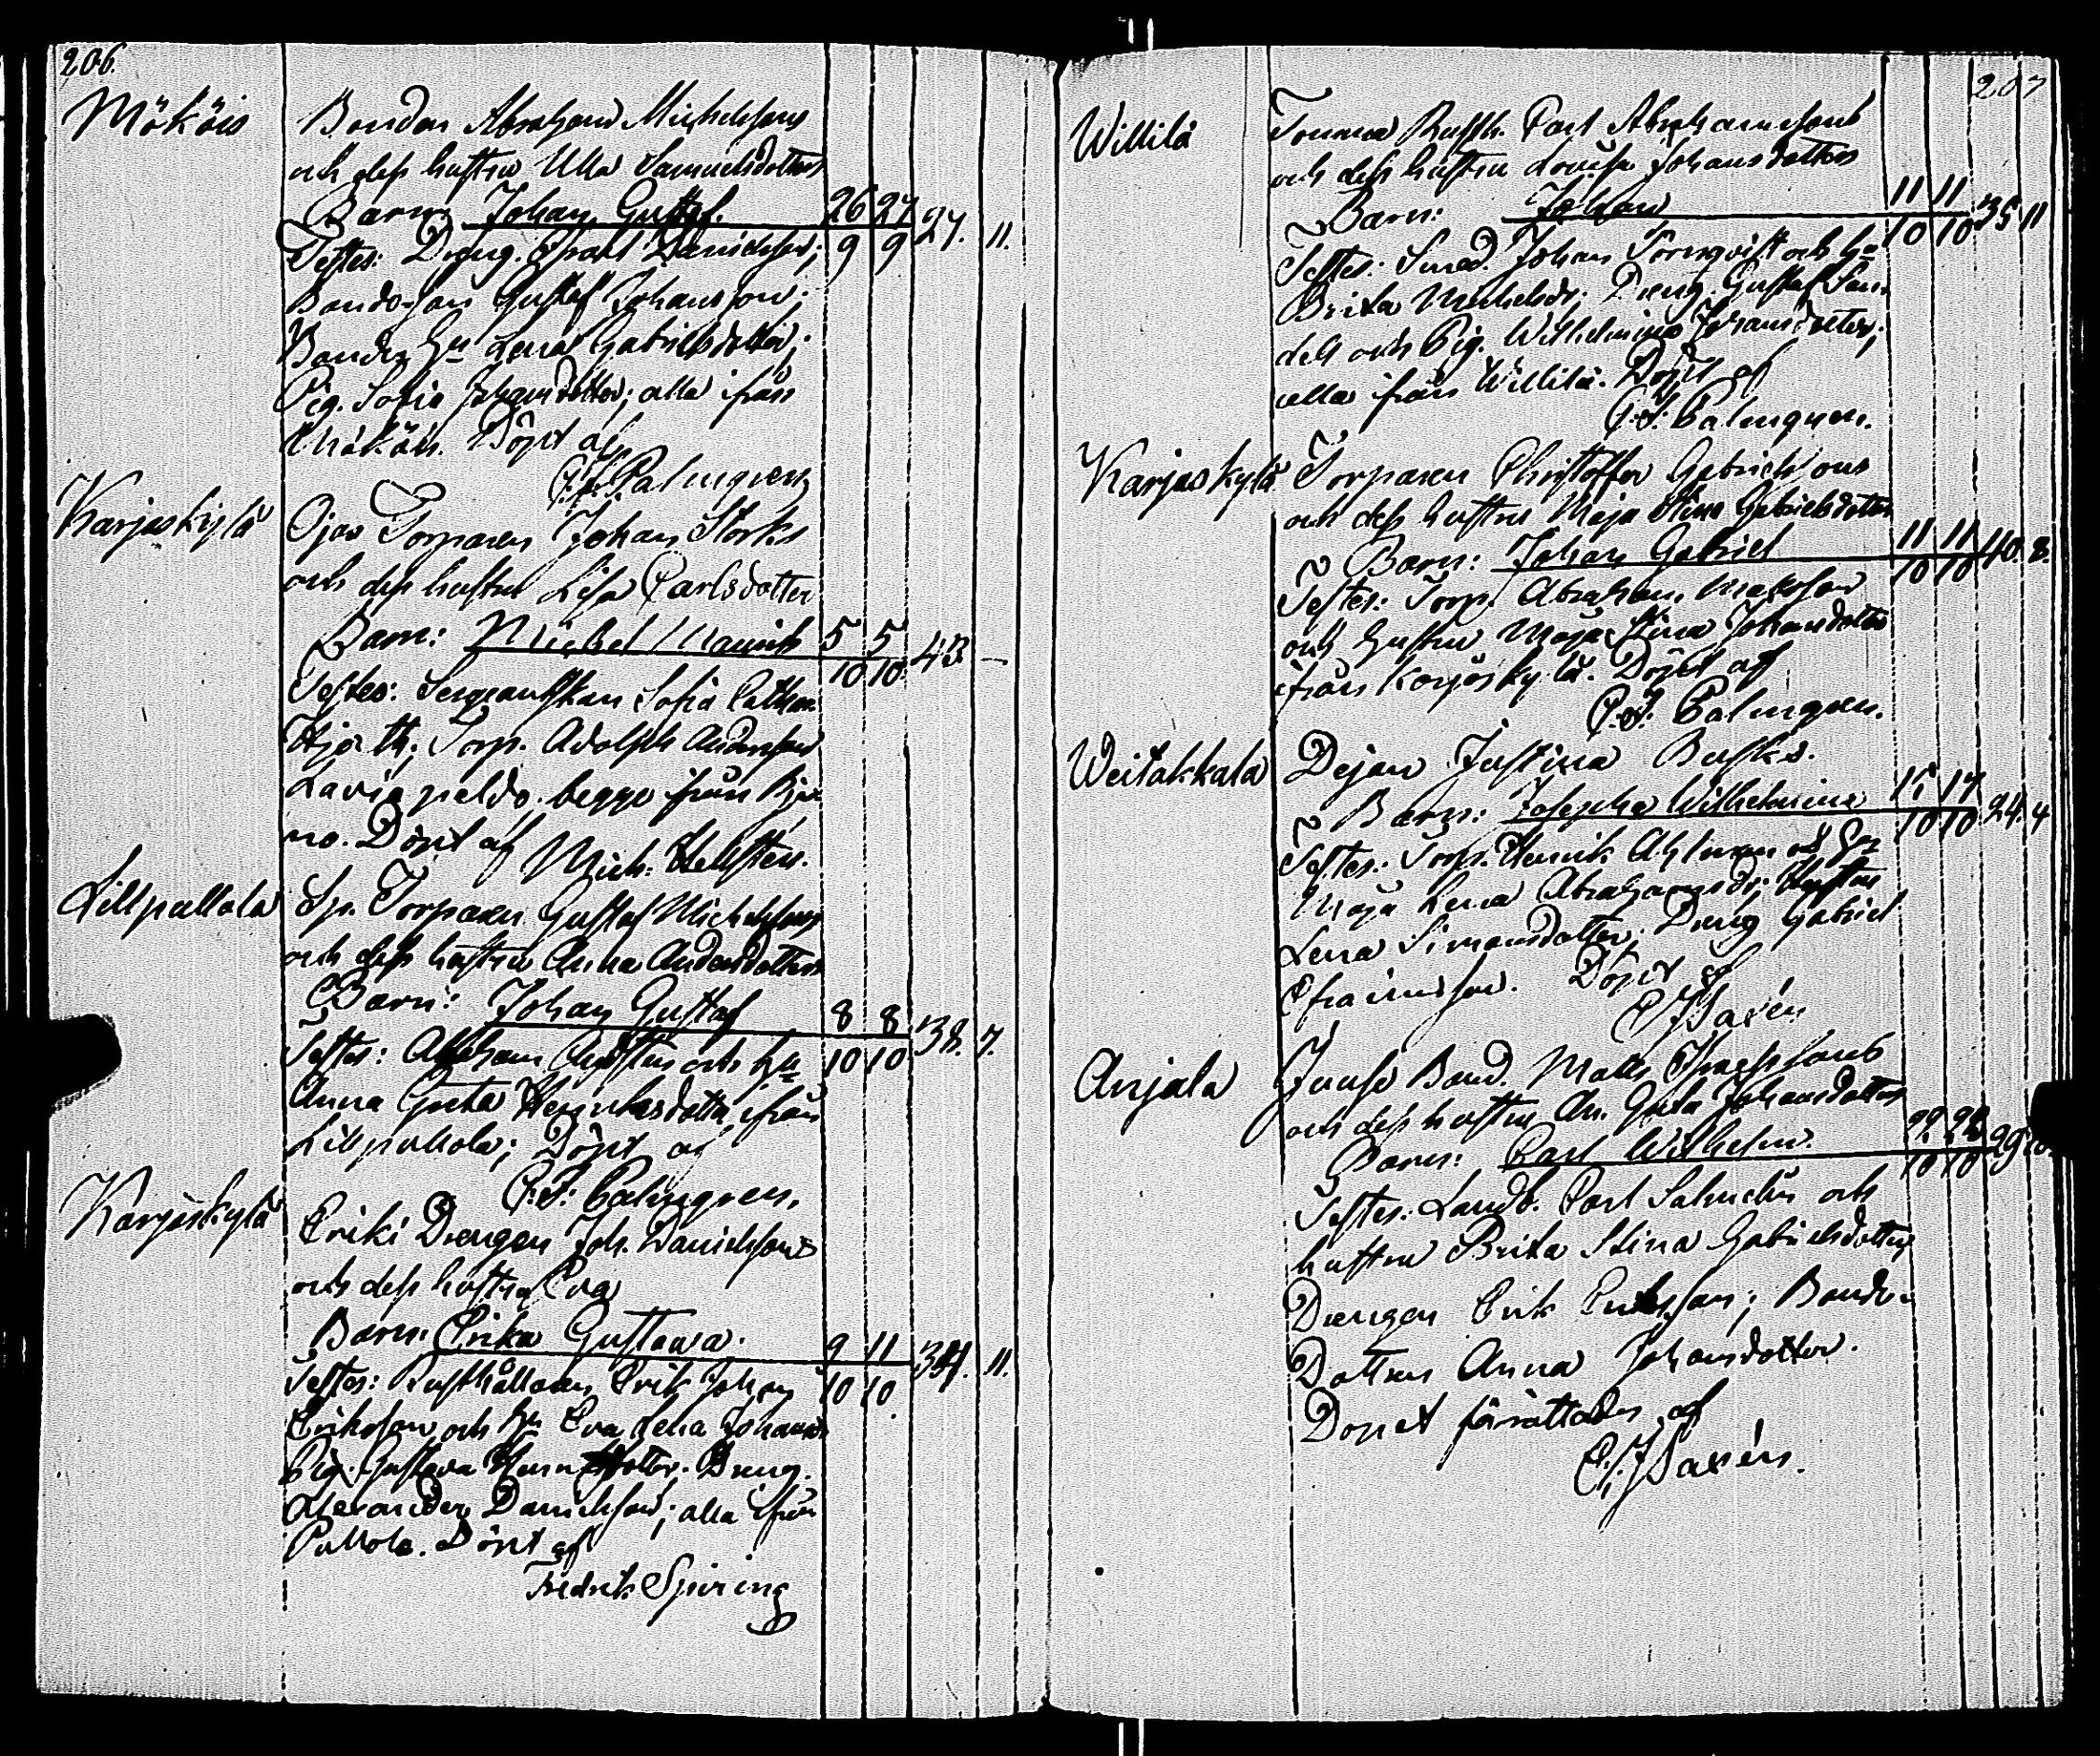 206.
Mököis Bonden Abraham Michelsons
och dess hustru Ulla Samuelsdotter
Barn: Johan Gustaf. 26 27 27. 11.
Testes: Dreng. Danielsson; 9 9
Bondeson Gustaf Johansson;
Bonden Hu Lena Gabrielsdotter;
Pig. Sofia Johansdotter; alla ifrån
Mököis. Döpt af
Palmgren
Karjaskylä Ojas Torparen Johan Storks
och dess hustru Lisa Carlsdotter
Barn: Michel Maurits 5 5 43. —
10 10
Testes: Sergeantskan Sofia Cathar.
Hjorth; Torp. Adolph Andersson
begge ifrån Bjer
no. Döpt af Mich: Hellsten.
Lillpallola Sp. Torparen Gustaf Michelsons
och dess hustru Anna Andersdotter
Barn: Johan Gustaf 8 8 38. 7.
Testes: Abraham och Hu 10 10
Anna Greta Henriksdotter ifrån
Lillpallola; Döpt af
Palmgren.
Karjaskylä Eriki Drengen Joh. Danielsons
och dess hustru Eva
Barn: Erika Gustava. 9 11 11.
Testes: Rusthållaren Erik Johan 10 10
Eriksson och Hu Eva Lena Johans
Pig. Gustava Dreng.
Alexander Danielsson; alla ifrån
Pallola. Döpt af
Fredrik Spiring
207
Willilä Rusth. Carl Abrahamsons
och dess hustru Lovisa Johansdotter
Barn: Johan 11 11 35 11
10 10
Testes: Smed. Johan Tornqvist och Hu
Brita Michelsdr; Dreng. Gustaf
och Pig. Wilhelmina Johansdotter;
alla ifrån Willilä. Döpt af
Palmgren.
Karjaskylä Torparen Christoffer Gabrielsons
och dess hustru Maja Stina Gabrielsdotter
Barn: Johan Gabriel 11 11 40. 8.
10 10
Testes: Torp. Abraham
och hustru Maja Stina Johansdotter
ifrån Karjaskylä. Döpt af
Palmgren.
Weitakkala Dejan Justina Busks.
Barn: Josepha Wilhelmina 17 24. 4
10 10
Testes: Torp. Henrik Ahlman
Maja Lena Abrahamsdr; Hustru
Lena Simonsdotter; Dreng Gabriel
Efraimsson. Döpt af
Saxén
Anjala Juuso Bond. Matts
och dess hustru An. Greta Johansdotter
Barn: Carl Wilhelm. 22 22 29
10 10
Testes: Landb. Carl Salmelin och
hustru Brita Stina Gabrielsdotter
Drengen Erik Eriksson; Bonde-
Dottren Anna Johansdotter.
Dopet förrättades af
Saxén.